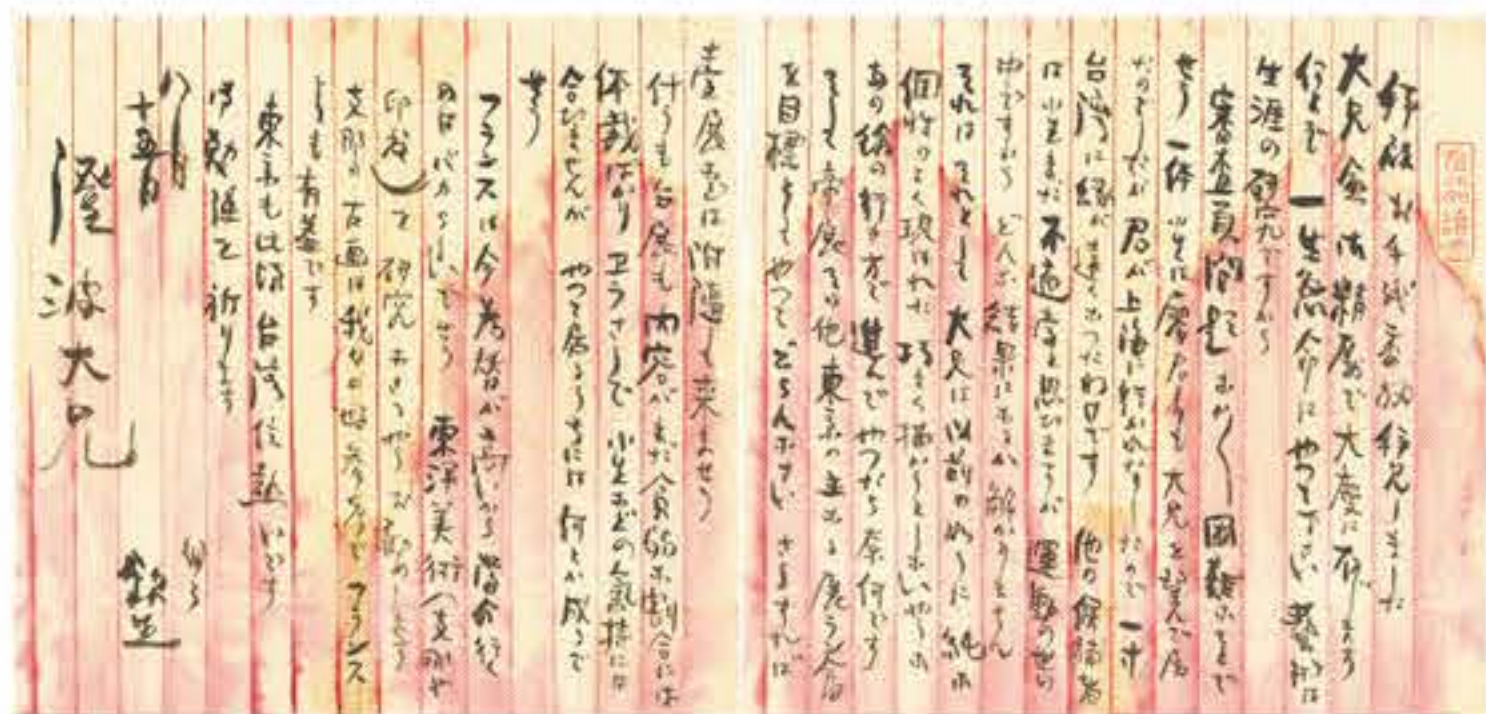 拝啓 お手紙委細拝見しました
大兄益御精励で大慶に存じます
何とぞ一生懸命にやつて下さい 芸術は
生涯の研究ですから
審査員問題 むつかしい 困難なことで
せう 一体小生は 君よりも大兄を望んで居
たのでしたが君が上海に行かれたりしたので一寸
台湾に縁が遠くなつたわけです 他の候補者
は小生まだ不適当と思ひますが 運動の世の
中ですから どんな結果になるか 解かりません
それはそれとして 大兄は以前のやうに純な
個性のよく現はれた 巧まく描かうとしないやうな
あの絵の行き方で進んでやつたら奈何です
そして帝展その他東京の主なる展らん会
を目標としてやつてごらんなさい さうすれば
台展などは附随して来ませう
什うも台展も内容がまだ貧弱な割合には
体裁ばかり エラさうで 小生などの気持には
合ひませんが やつて居るうちには 何とか成るで
せう
フランスは今為替が高いから 留学行く
のはバカらしいでせう 東洋美術(支那や
印度)を研究なさるやうお勧めします
支那の古画は我々の好参考で フランス
よりも有益です
東京も此頃台湾位熱いです
御勉強を祈ります
八月
十五日
欽一生
澄波大兄